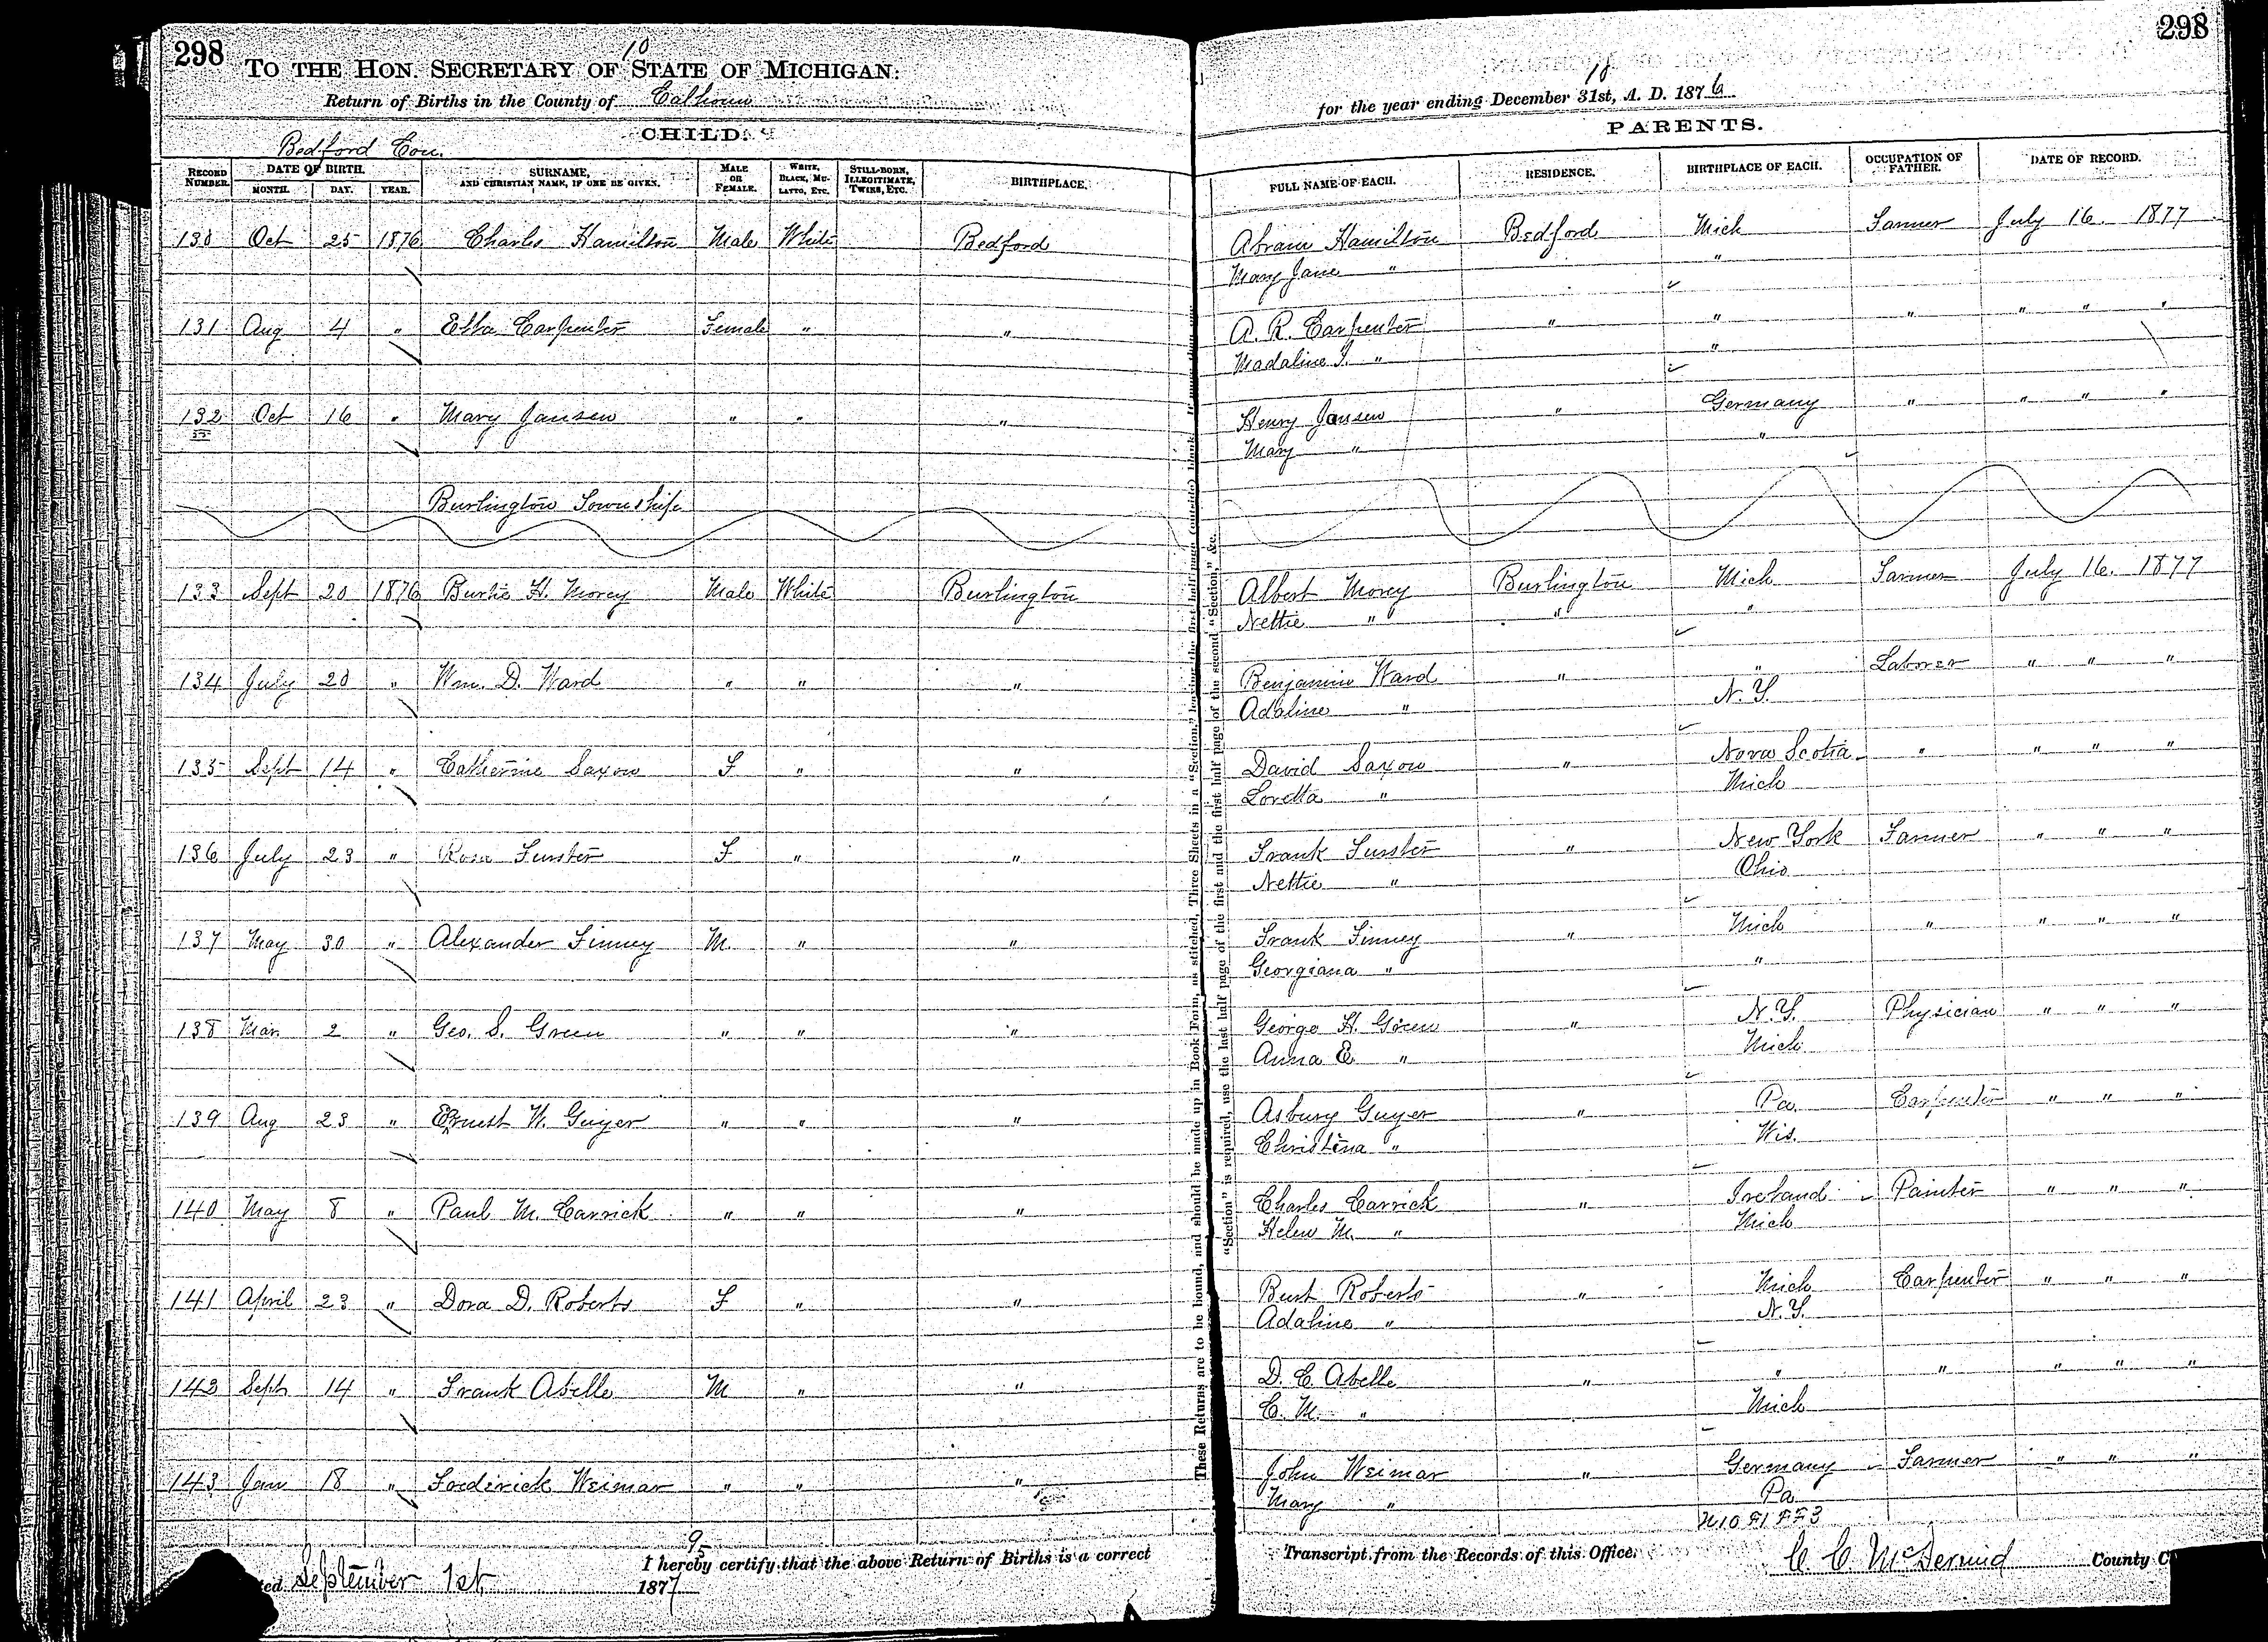 298
10
TO THE HON. SECRETARY OF STATE OF MICHIGAN:
Return of Births in the County of Calhoun
CHILD.
Bedford Con.
RECORD NUMBER. DATE OF BIRTH. MONTH. DAY. YEAR. SURNAME, AND CHRISTIAN NAME, IF ONE BE GIVEN. MALE OR FEMALE. WHITE, BLACK, MULATTO, ETC. STILL-BORN, ILLEGITIMATE, TWINS, ETC. BIRTHPLACE.
130 Oct 25 1876 Charles Hamilton Male White Bedford
131 Aug 4 " Etta Carpenter Female " "
132 Oct 16 " Mary Jansen " " "
Burlington Township
133 Sept 20 1876 Burtie H. Morey Male White Burlington
134 July 20 " Wm. D. Ward " " "
135 Sept 14 " Catherine Saxon F " "
136 July 23 " Rosa Furster F " "
137 May 30 " Alexander Finney M. " "
138 Mar 2 " Geo. S. Green " " "
139 Aug 23 " Ernest W. Guyer " " "
140 May 8 " Paul M. Carrick " " "
141 April 23 " Dora D. Roberts F " "
143 Sept 14 " Frank Abelle M " "
143 Jan 18 " Frederick Weimar " " "
95
I hereby certify that the above Return of Births is a correct
September 1st 1877
298
18
for the year ending December 31st, A. D. 1876
PARENTS.
FULL NAME OF EACH. RESIDENCE. BIRTHPLACE OF EACH. OCCUPATION OF FATHER. DATE OF RECORD.
Abram Hamilton Bedford Mich Farmer July 16. 1877
Mary Jane " "
A. R. Carpenter " " " " " "
Madaline I. " "
Henry Jansen " Germany " " " "
Mary " "
Albert Morey Burlington Mich Farmer July 16. 1877
Nettie " " "
Benjamin Ward " " Laborer " " "
Adaline " N.Y.
David Saxon " Nova Scotia " " " "
Loretta " Mich
Frank Furster " New York Farmer " " "
Nettie " Ohio
Frank Finney " Mich " " " "
Georgiana " "
George H. Green " N.Y. Physician " " "
Anna E. " Mich
Asbury Guyer " Pa. Carpenter " " "
Christena " Wis.
Charles Carrick " Ireland Painter " " "
Helen M. " Mich
Burt Roberts " Mich Carpenter " " "
Adaline " N.Y.
D. E. Abelle " " " " " "
C. M. " Mich
John Weimar " Germany Farmer " " "
Mary " Pa
Transcript from the Records of this Office.
C. C. McDermid County C
These Returns are to be bound, and should be made up in Book Form, as stitched, Three Sheets in a "Section,"
"Section" is required, use the last half page of the first and the first half page of the second "Section," &c.